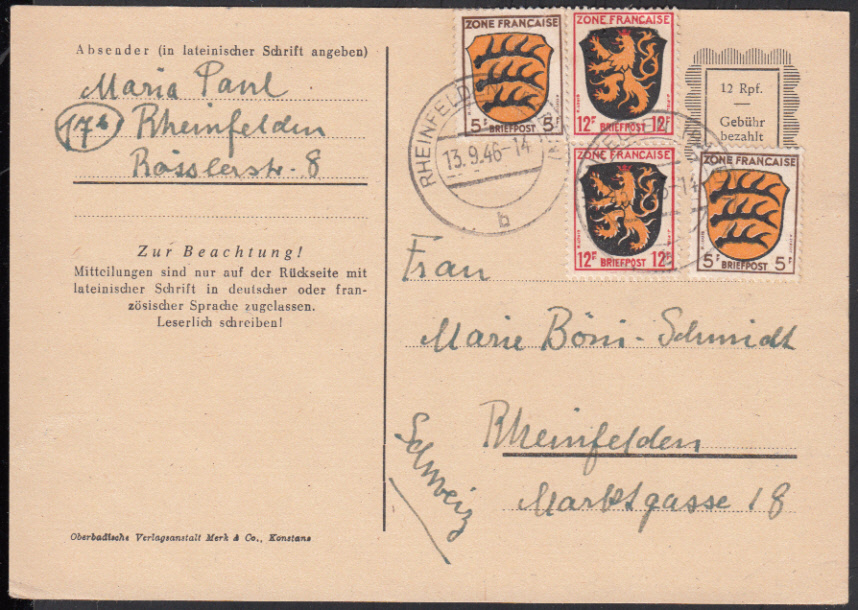 Absender (in lateinischer Schrift angeben)
Maria Paul
17b Rheinfelden
Rösslerstr. 8
Zur Beachtung!
Mitteilungen sind nur auf der Rückseite mit
lateinischer Schrift in deutscher oder fran-
zösischer Sprache zugelassen.
Leserlich schreiben!
Oberbadische Verlagsanstalt Merk & Co., Konstanz
ZONE FRANÇAISE
5F BRIEFPOST 5F
ZONE FRANÇAISE
12F BRIEFPOST 12F
12 Rpf.
—
Gebühr
bezahlt
RHEINFELDEN
13.9.46-14
b
ZONE FRANÇAISE
12F BRIEFPOST 12F
ZONE FRANÇAISE
5F BRIEFPOST 5F
Frau
Marie Böni-Schmidt
Rheinfelden
Marktgasse 18
Schweiz